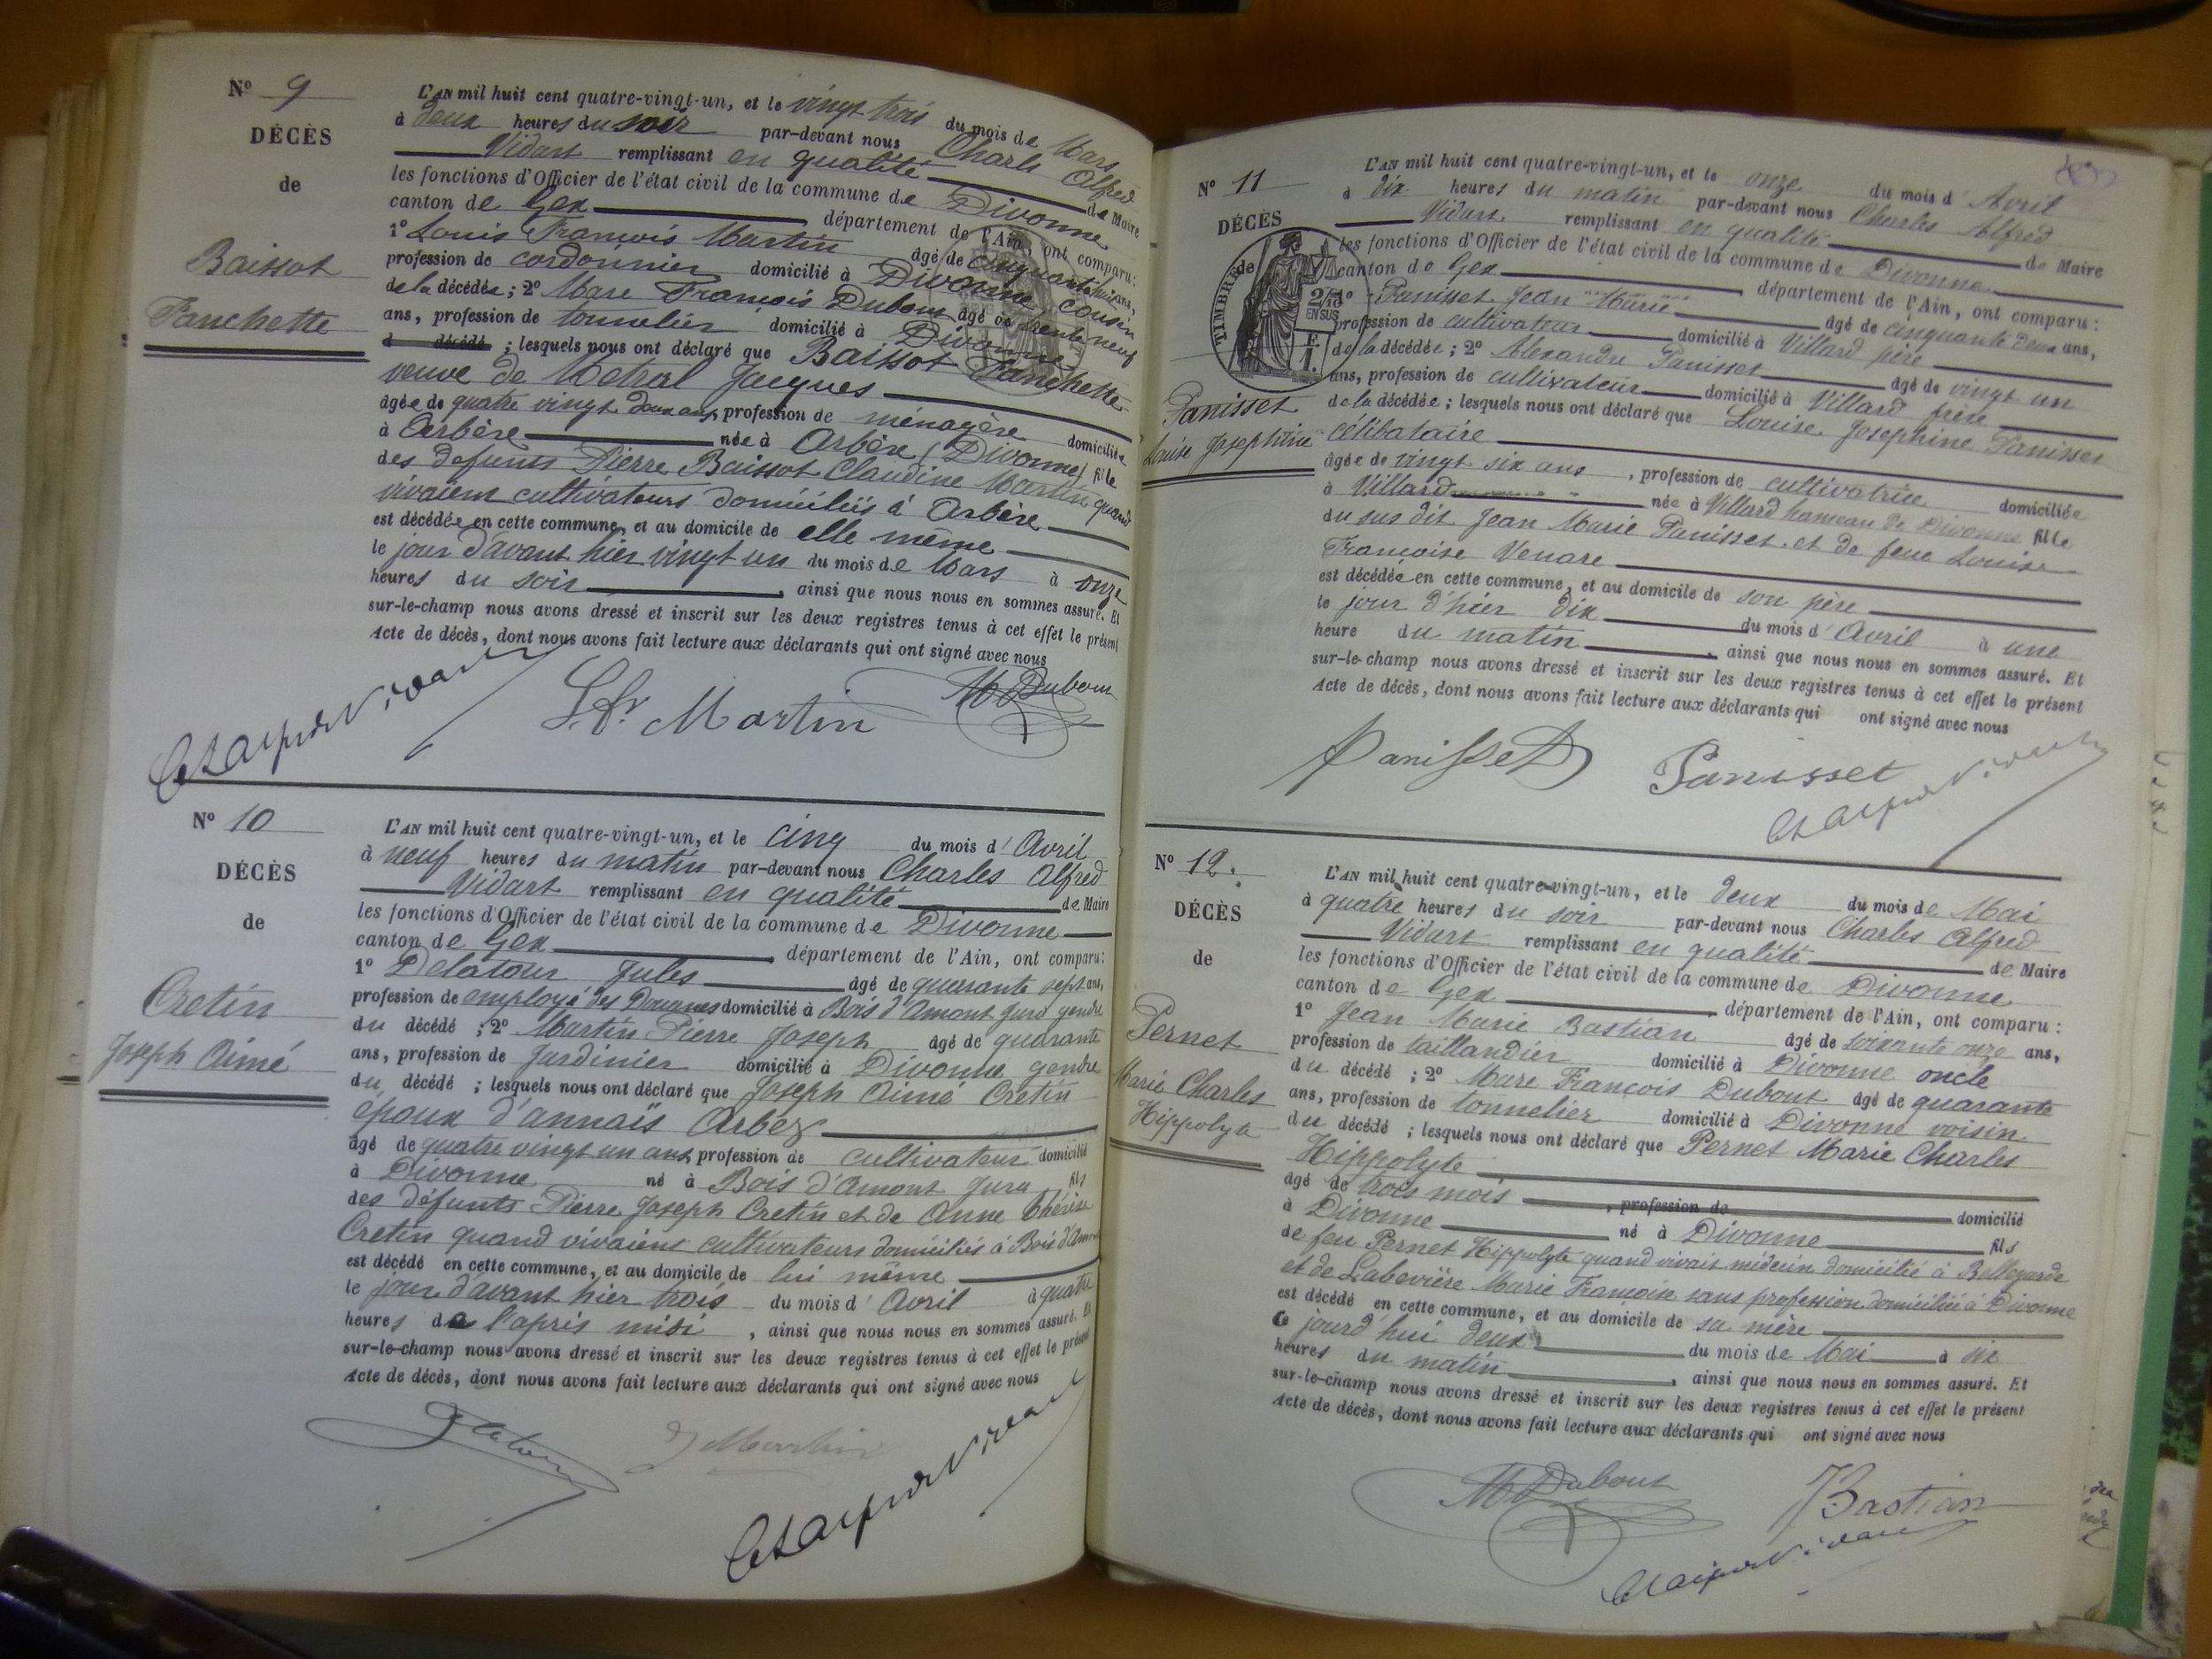 N° 9
DÉCÈS
de
Baissot
Panchette
L'AN mil huit cent quatre-vingt-un, et le vingt trois du mois de Mars
à deux heures du soir par-devant nous Charles Alfred
Vidart remplissant en qualité de Maire
les fonctions d'Officier de l'état civil de la commune de Divonne
canton de Gex département de l'Ain, ont comparu:
1° Louis François Martin âgé de cinquante huit ans,
profession de cordonnier domicilié à Divonne cousin
de la décédée; 2° Marc François Dubout âgé de trente neuf
ans, profession de tonnelier domicilié à Divonne
d décédé; lesquels nous ont déclaré que Baissot Panchette
veuve de Metral Jacques
âgée de quatre vingt deux ans, profession de ménagère domiciliée
à Arbère née à Arbère (Divonne) fille
des defunts Pierre Baissot Claudine Martin quand
vivaient cultivateurs domiciliés à Arbère
est décédée en cette commune, et au domicile de elle même
le jour d'avant hier vingt un du mois de Mars à onze
heures du soir, ainsi que nous nous en sommes assuré. Et
sur-le-champ nous avons dressé et inscrit sur les deux registres tenus à cet effet le présent
Acte de décès, dont nous avons fait lecture aux déclarants qui ont signé avec nous
L. Fs Martin
M Dubout
N° 10
DÉCÈS
de
Cretin
Joseph Aimé
L'AN mil huit cent quatre-vingt-un, et le cinq du mois d'Avril
à neuf heures du matin par-devant nous Charles Alfred
Vidart remplissant en qualité de Maire
les fonctions d'Officier de l'état civil de la commune de Divonne
canton de Gex département de l'Ain, ont comparu:
1° Delatour Jules âgé de quarante sept ans,
profession de employé des Douanes domicilié à Bois d'Amont Jura gendre
du décédé; 2° Martin Pierre Joseph âgé de quarante
ans, profession de Jardinier domicilié à Divonne gendre
du décédé; lesquels nous ont déclaré que Joseph Aimé Cretin
époux d'annaïs Arbez
âgé de quatre vingt un ans, profession de cultivateur domicilié
à Divonne né à Bois d'Amont Jura fils
des défunts Pierre Joseph Cretin et de Anne Thérèse
Cretin quand vivaient cultivateurs domiciliés à Bois d'Amont
est décédé en cette commune, et au domicile de lui même
le jour d'avant hier trois du mois d'Avril à quatre
heures de l'après midi, ainsi que nous nous en sommes assuré. Et
sur-le-champ nous avons dressé et inscrit sur les deux registres tenus à cet effet le présent
Acte de décès, dont nous avons fait lecture aux déclarants qui ont signé avec nous
J Martin
N° 11
DÉCÈS
de
TIMBRE
2/10 EN SUS
F. 1.
Panisset
Louise Josephine
L'AN mil huit cent quatre-vingt-un, et le onze du mois d'Avril
à dix heures du matin par-devant nous Charles Alfred
Vidart remplissant en qualité de Maire
les fonctions d'Officier de l'état civil de la commune de Divonne
canton de Gex département de l'Ain, ont comparu:
1° Panisset Jean Marie âgé de cinquante deux ans,
profession de cultivateur domicilié à Villard père
de la décédée; 2° Alexandre Panisset âgé de vingt un
ans, profession de cultivateur domicilié à Villard frère
de la décédée; lesquels nous ont déclaré que Louise Josephine Panisset
célibataire
âgée de vingt six ans, profession de cultivatrice domiciliée
à Villard née à Villard hameau de Divonne fille
du sus dit Jean Marie Panisset et de feue Louise
Françoise Venare
est décédée en cette commune, et au domicile de son père
le jour d'hier dix du mois d'Avril à une
heure du matin, ainsi que nous nous en sommes assuré. Et
sur-le-champ nous avons dressé et inscrit sur les deux registres tenus à cet effet le présent
Acte de décès, dont nous avons fait lecture aux déclarants qui ont signé avec nous
Panisset
Panisset
N° 12.
DÉCÈS
de
Pernet
Marie Charles
Hippolyte
L'AN mil huit cent quatre-vingt-un, et le deux du mois de Mai
à quatre heures du soir par-devant nous Charles Alfred
Vidart remplissant en qualité de Maire
les fonctions d'Officier de l'état civil de la commune de Divonne
canton de Gex département de l'Ain, ont comparu:
1° Jean Marie Bastian âgé de soixante onze ans,
profession de taillandier domicilié à Divonne oncle
du décédé; 2° Marc François Dubout âgé de quarante
ans, profession de tonnelier domicilié à Divonne voisin
du décédé; lesquels nous ont déclaré que Pernet Marie Charles
Hippolyte
âgé de trois mois, profession de domicilié
à Divonne né à Divonne fils
de feu Pernet Hippolyte quand vivait médecin domicilié à Bellegarde
et de Labevière Marie Françoise sans profession domiciliée à Divonne
est décédé en cette commune, et au domicile de sa mère
Ce jourd'hui deux du mois de Mai à six
heures du matin, ainsi que nous nous en sommes assuré. Et
sur-le-champ nous avons dressé et inscrit sur les deux registres tenus à cet effet le présent
Acte de décès, dont nous avons fait lecture aux déclarants qui ont signé avec nous
M Dubout
Bastian